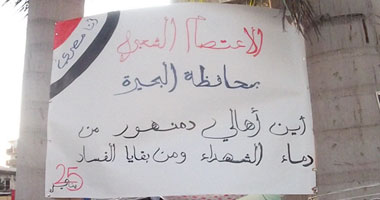 أنا مصرى
الاعتصام المفتوح
بمحافظة البحيرة
أين أهالي دمنهور من
دماء الشهداء ومن بقايا الفساد
25